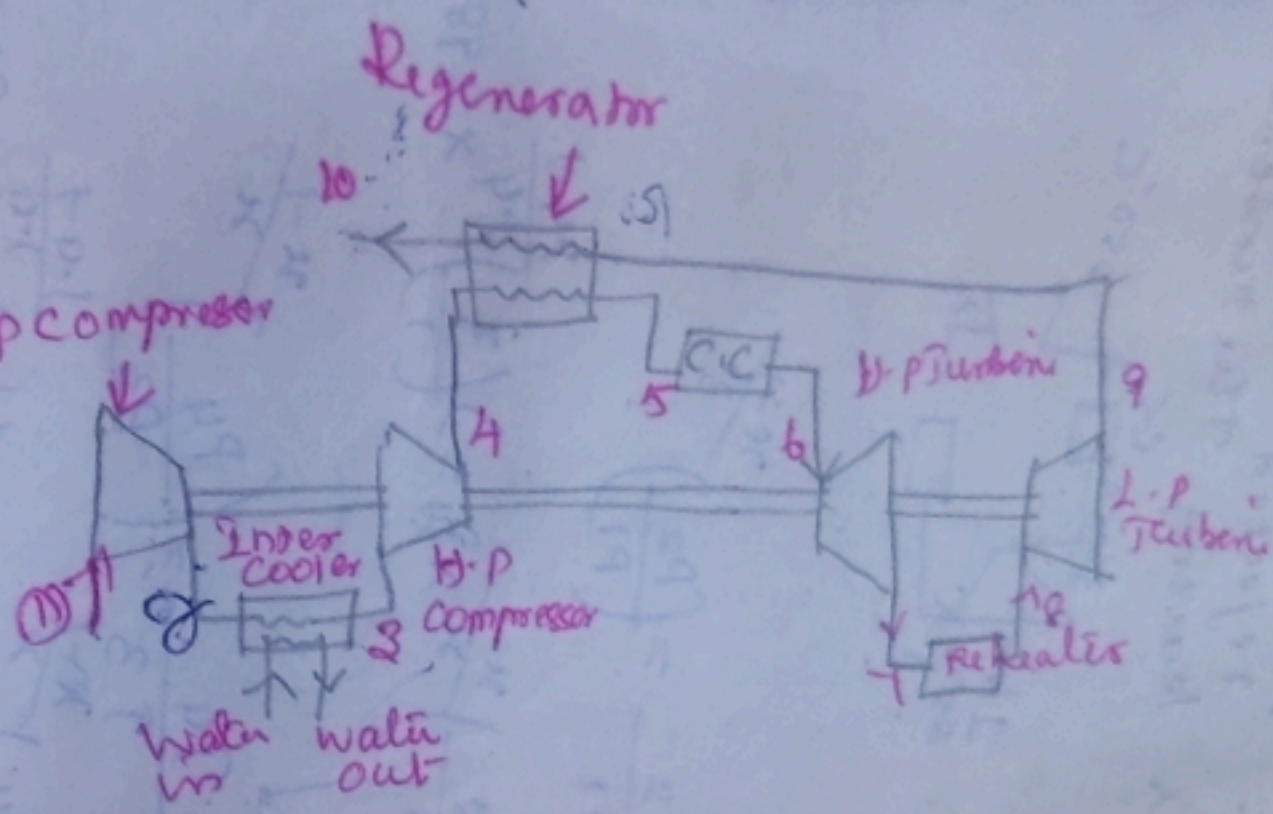 Regenerator
10
p compressor
C.C
H.pTurbin
5
9
4
6
L.p
Turbin
Inter
cooler
H.p
compressor
1
2
3
8
7
Reheater
Water
in
Water
out